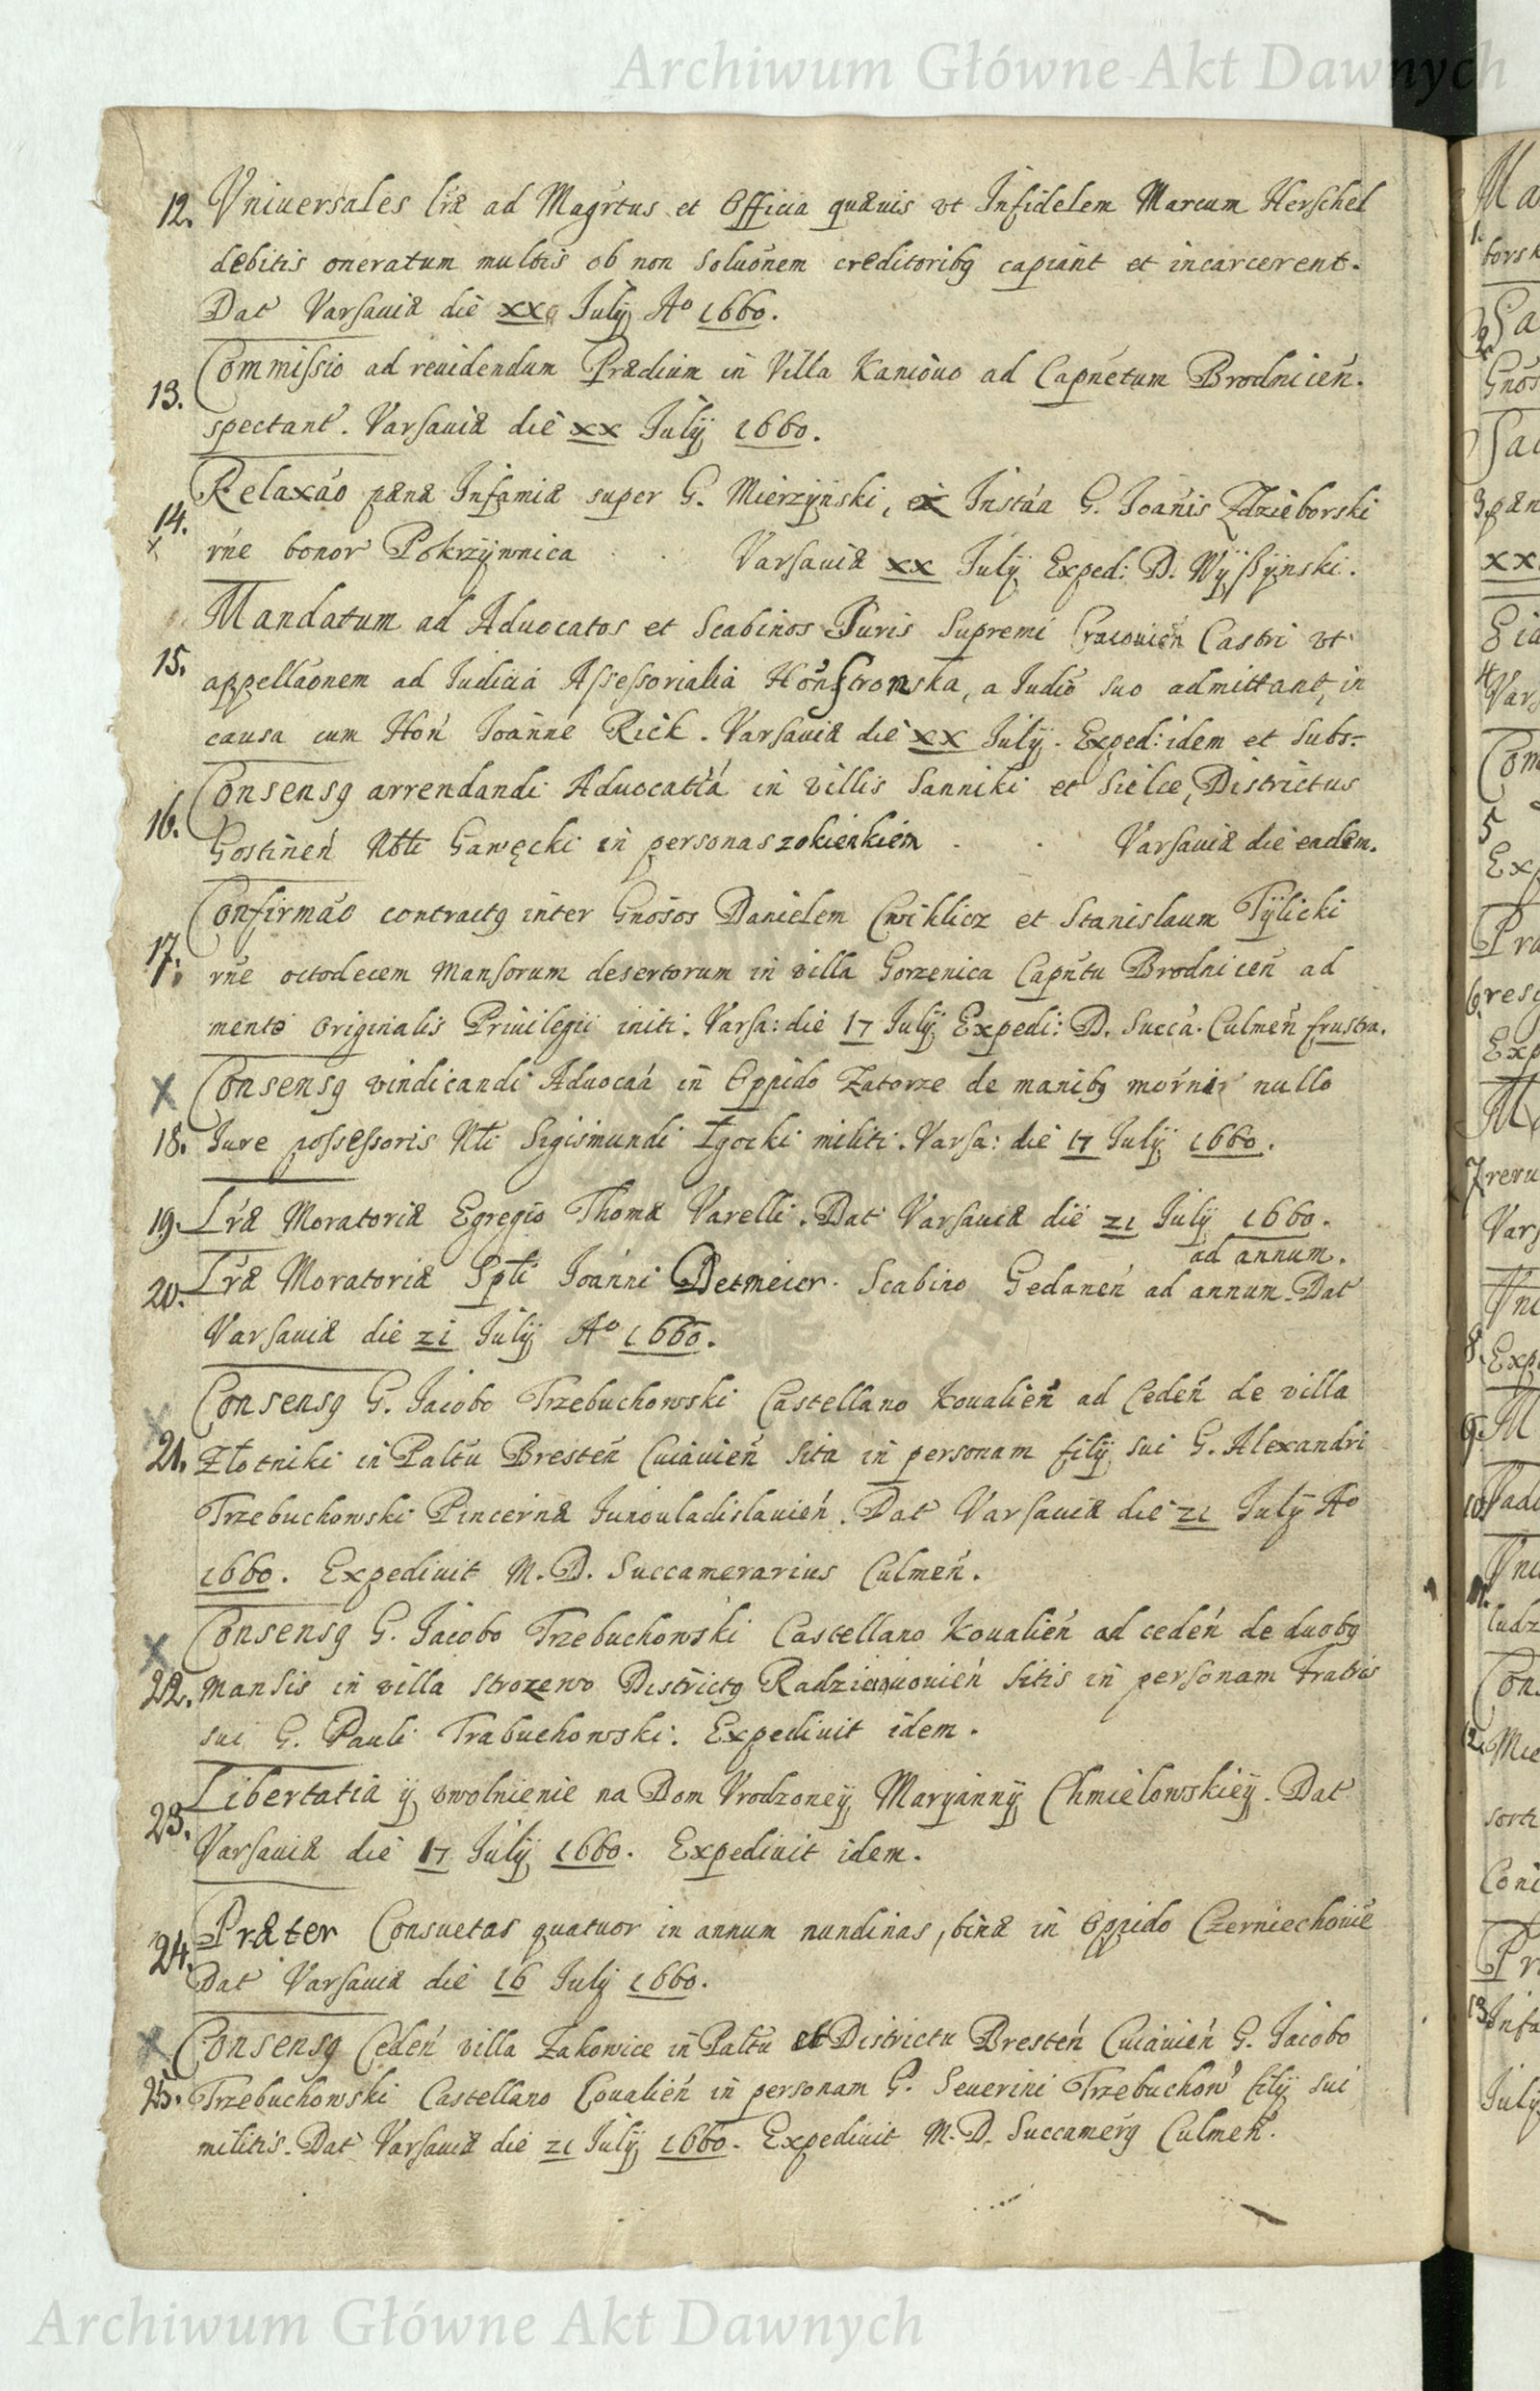 Archiwum Główne Akt Dawnych
12. Vniuersales Lræ ad Magr̃tus et Officia quæuis vt Infidelem Marcum Herschel
debitis oneratum multis ob non Soluõnem creditoribq capiant et incarcerent.
Dat Varsauiæ die xxo July Ao 1660.
13. Commissio ad reuidendum Prædium in Villa Kaniouo ad Capnetum Brodnicen̄.
spectant. Varsauiæ die xx July 1660.
14. Relaxáo pænæ Infamiæ super G. Mierzyński, ex Instáa G. Joánis Zdzieborski
x rńe bonor Pokrzywnica Varsauiæ xx July Exped: D. Wyssynski.
15. Mandatum ad Aduocatos et Scabinos Juris Supremi Cracouień Castri vt
appellaõnem ad Iudicia Assessorialia Hon̄ Stronska, a Iudio suo admittant, in
causa cum Hon̄ Joanne Rick. Varsauiæ die xx July. Exped: idem et Subs:
16. Consensq arrendandi Aduocatiá in villis Sanniki et Sielce, Districtus
Gostinen̄ Nbli Gawęcki in personas Varsauiæ die eadem.
17. Confirmáo contractq inter Gnosos Danielem Cwiklicz et Stanislaum Tylicki
rñe octodecem Mansorum desertorum in villa Gorzenica Capñtu Brodnicen̄ ad
mente Originalis Priuilegii initi. Varsa: die 17 July Expedi: D. Succa. Culmen̄ frustra.
x Consensq vindicandi Aduocaá in Oppido Zatorze de manibq nullo
18. Iure possessoris Nli Sigismundi militi. Varsa: die 17 July 1660.
19. Lræ Moratoriæ Egregio Thomæ Varelli. Dat Varsauiæ die 21 July 1660.
ad annum.
20. Lræ Moratoriæ Spli Joánni Detmeier Scabino Gedanen̄ ad annum. Dat
Varsauiæ die 21 July Ao 1660.
x Consensq G. Jacobo Trzebuchowski Castellano Koualien̄ ad Ceden̄ de villa
21. Złotniki in Paltu Bresten̄ Cuiauien̄ Sita in personam filÿ sui G. Alexandri
Trzebuchowski Pincernæ Iunouladislauien̄. Dat Varsauiæ die 21 July Ao
1660. Expediuit M. D. Succamerarius Culmen̄.
x Consensq G. Jacobo Trzebuchowski Castellano Koualien̄ ad ceden̄ de duobq
22. Mansis in villa Strozewo Districtq sitis in personam fratris
sui G. Pauli Trabuchowski. Expediuit idem.
23. Libertatia ÿ vwolnienie na Dom Vrodzoneÿ Marÿannÿ Chmielowskieÿ. Dat
Varsauiæ die 17 July 1660. Expediuit idem.
24. Præter Consuetas quatuor in annum nundinas, binæ in Oppido Czerniechouie
Dat Varsauiæ die 16 July 1660.
x Consensq Ceden̄ villa Zakowice in Paltu et Districtu Bresten̄ Cuiauien̄ G. Jacobo
25. Trzebuchowski Castellano Coualien̄ in personam G. Seuerini Trzebuchow filÿ sui
militis. Dat Varsauiæ die 21 July 1660. Expediuit M. D. Succamerq Culmen̄.
Archiwum Główne Akt Dawnych